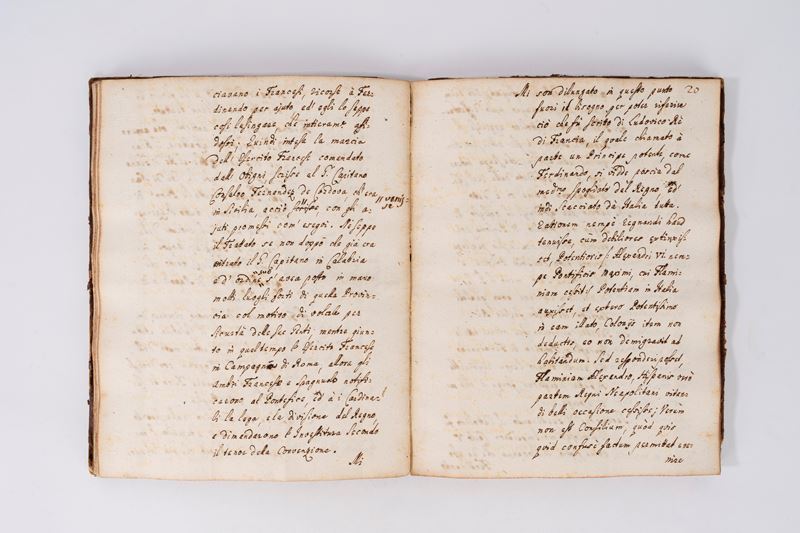 ciavano i Francesi, ricorse à Fer-
dinando per ajuto ed' egli lo seppe
così lusingare, che
Quindi intesa la marcia
dell' Esercito Francese comandato
dall' Obignì scrisse al G. Capitano
Consalvo Fernandez de Cordova, ch' era
in Sicilia acciò con gli a-
juti promessi com' eseguì. Nè seppe
il Trattato se non doppo che già era
entrato il G. Capitano in Calabria
ed' avea posto in mano
molti luoghi forti di quella Provin-
cia col motivo di volerle per
sicurtà delle sue Genti; mentre giun-
to in quel tempo lo Esercito Francese
in Campagna di Roma, allora gli
Ambri Francese e Spagnuolo notifi-
carono al Pontefice, ed à i Cardina-
li la lega, e la divisione del Regno
e dimandarono l'Investitura secondo
il tenor della Convenzione.
Mi
20
Mi son dilungato in questo punto
fuori il bisogno per poter riferire
ciò che fù scritto di Ludovico Rè
di Francia, il quale chiamato à
parte un Principe potente, come
Ferdinando, si vide poscia dal
medmo spogliato del Regno ed'
indi scacciato dà Italia tutta.
Rationem nempè Regnandi haud
tenuisse, cum debiliores extinxis-
set, Potentiores / Alexandri VI nem-
pe Pontificis maximi, cui Flami-
niam cessit / Potentiam in Italia
auxisset, et exterum Potentissimum
in eam illato, Colonijs item non
deductis, eo non demigrasset ad
habitandum: Sed respondere posset,
Flaminiam Alexandro, Hispanis verò
partem Regni Neapolitani vitan-
di belli occasione cessisse; Verum
non est Consilium, quod quis
quid confusi factum, permittat eve-
nire